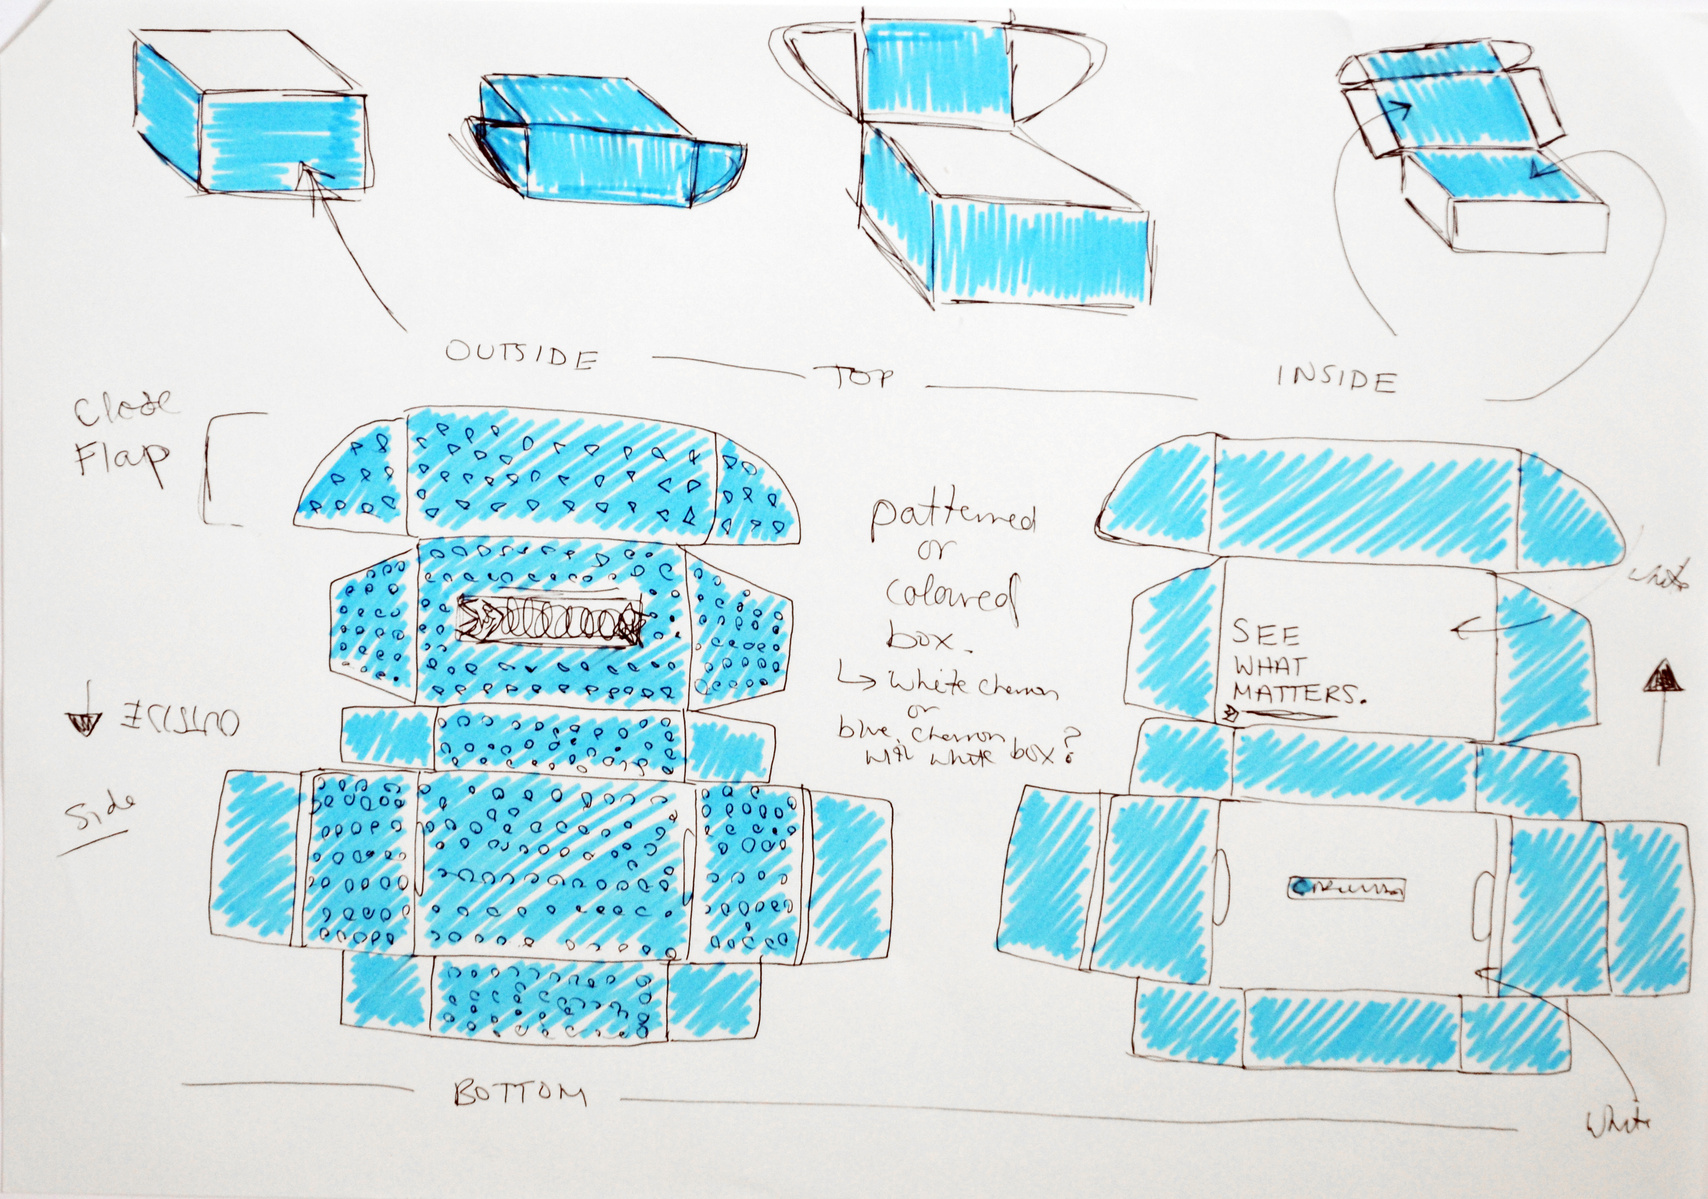 OUTSIDE
TOP
INSIDE
Close
Flap
patterned
or
coloured
box.
white chevron
or
blue chevron
with white box?
white
SEE
WHAT
MATTERS.
OUTSIDE
Side
BOTTOM
white